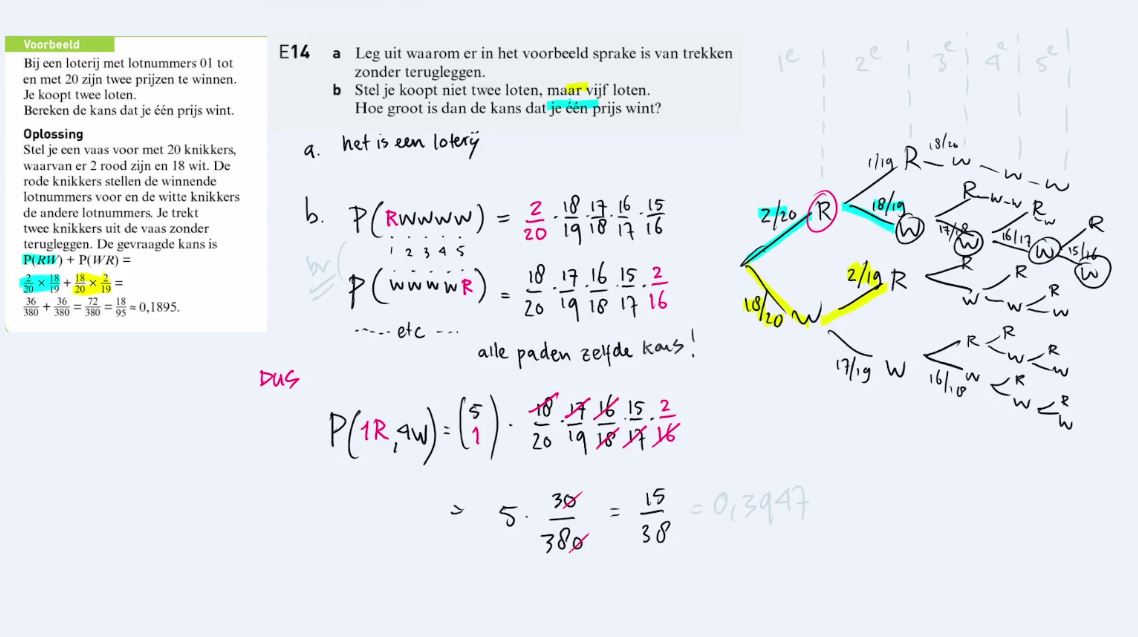 Voorbeeld
Bij een loterij met lotnummers 01 tot
en met 20 zijn twee prijzen te winnen.
Je koopt twee loten.
Bereken de kans dat je één prijs wint.
Oplossing
Stel je een vaas voor met 20 knikkers,
waarvan er 2 rood zijn en 18 wit. De
rode knikkers stellen de winnende
lotnummers voor en de witte knikkers
de andere lotnummers. Je trekt
twee knikkers uit de vaas zonder
terugleggen. De gevraagde kans is
P(RW) + P(WR) =
2/20 × 18/19 + 18/20 × 2/19 =
36/380 + 36/380 = 72/380 = 18/95 ≈ 0,1895.
E14 a Leg uit waarom er in het voorbeeld sprake is van trekken
zonder terugleggen.
b Stel je koopt niet twee loten, maar vijf loten.
Hoe groot is dan de kans dat je één prijs wint?
a. het is een loterij
b. P(RWWWW) = 2/20 · 18/19 · 17/18 · 16/17 · 15/16
1 2 3 4 5
br(
P(WWWWR) = 18/20 · 17/19 · 16/18 · 15/17 · 2/16
..... etc ...
alle paden zelfde kans!
DUS
P(1R,4W) = (5 1) · 18/20 · 17/19 · 16/18 · 15/17 · 2/16
= 5 · 30/380 = 15/38 = 0,3947
1e 2e 3e 4e 5e
1/19 R 18/20 W W W
2/20 R 18/19 W R W-W R W R
17/18 W 16/17 W 15/16 W
18/20 W 2/19 R R W R W R W
17/19 W 16/18 W R R W R W
R W R W